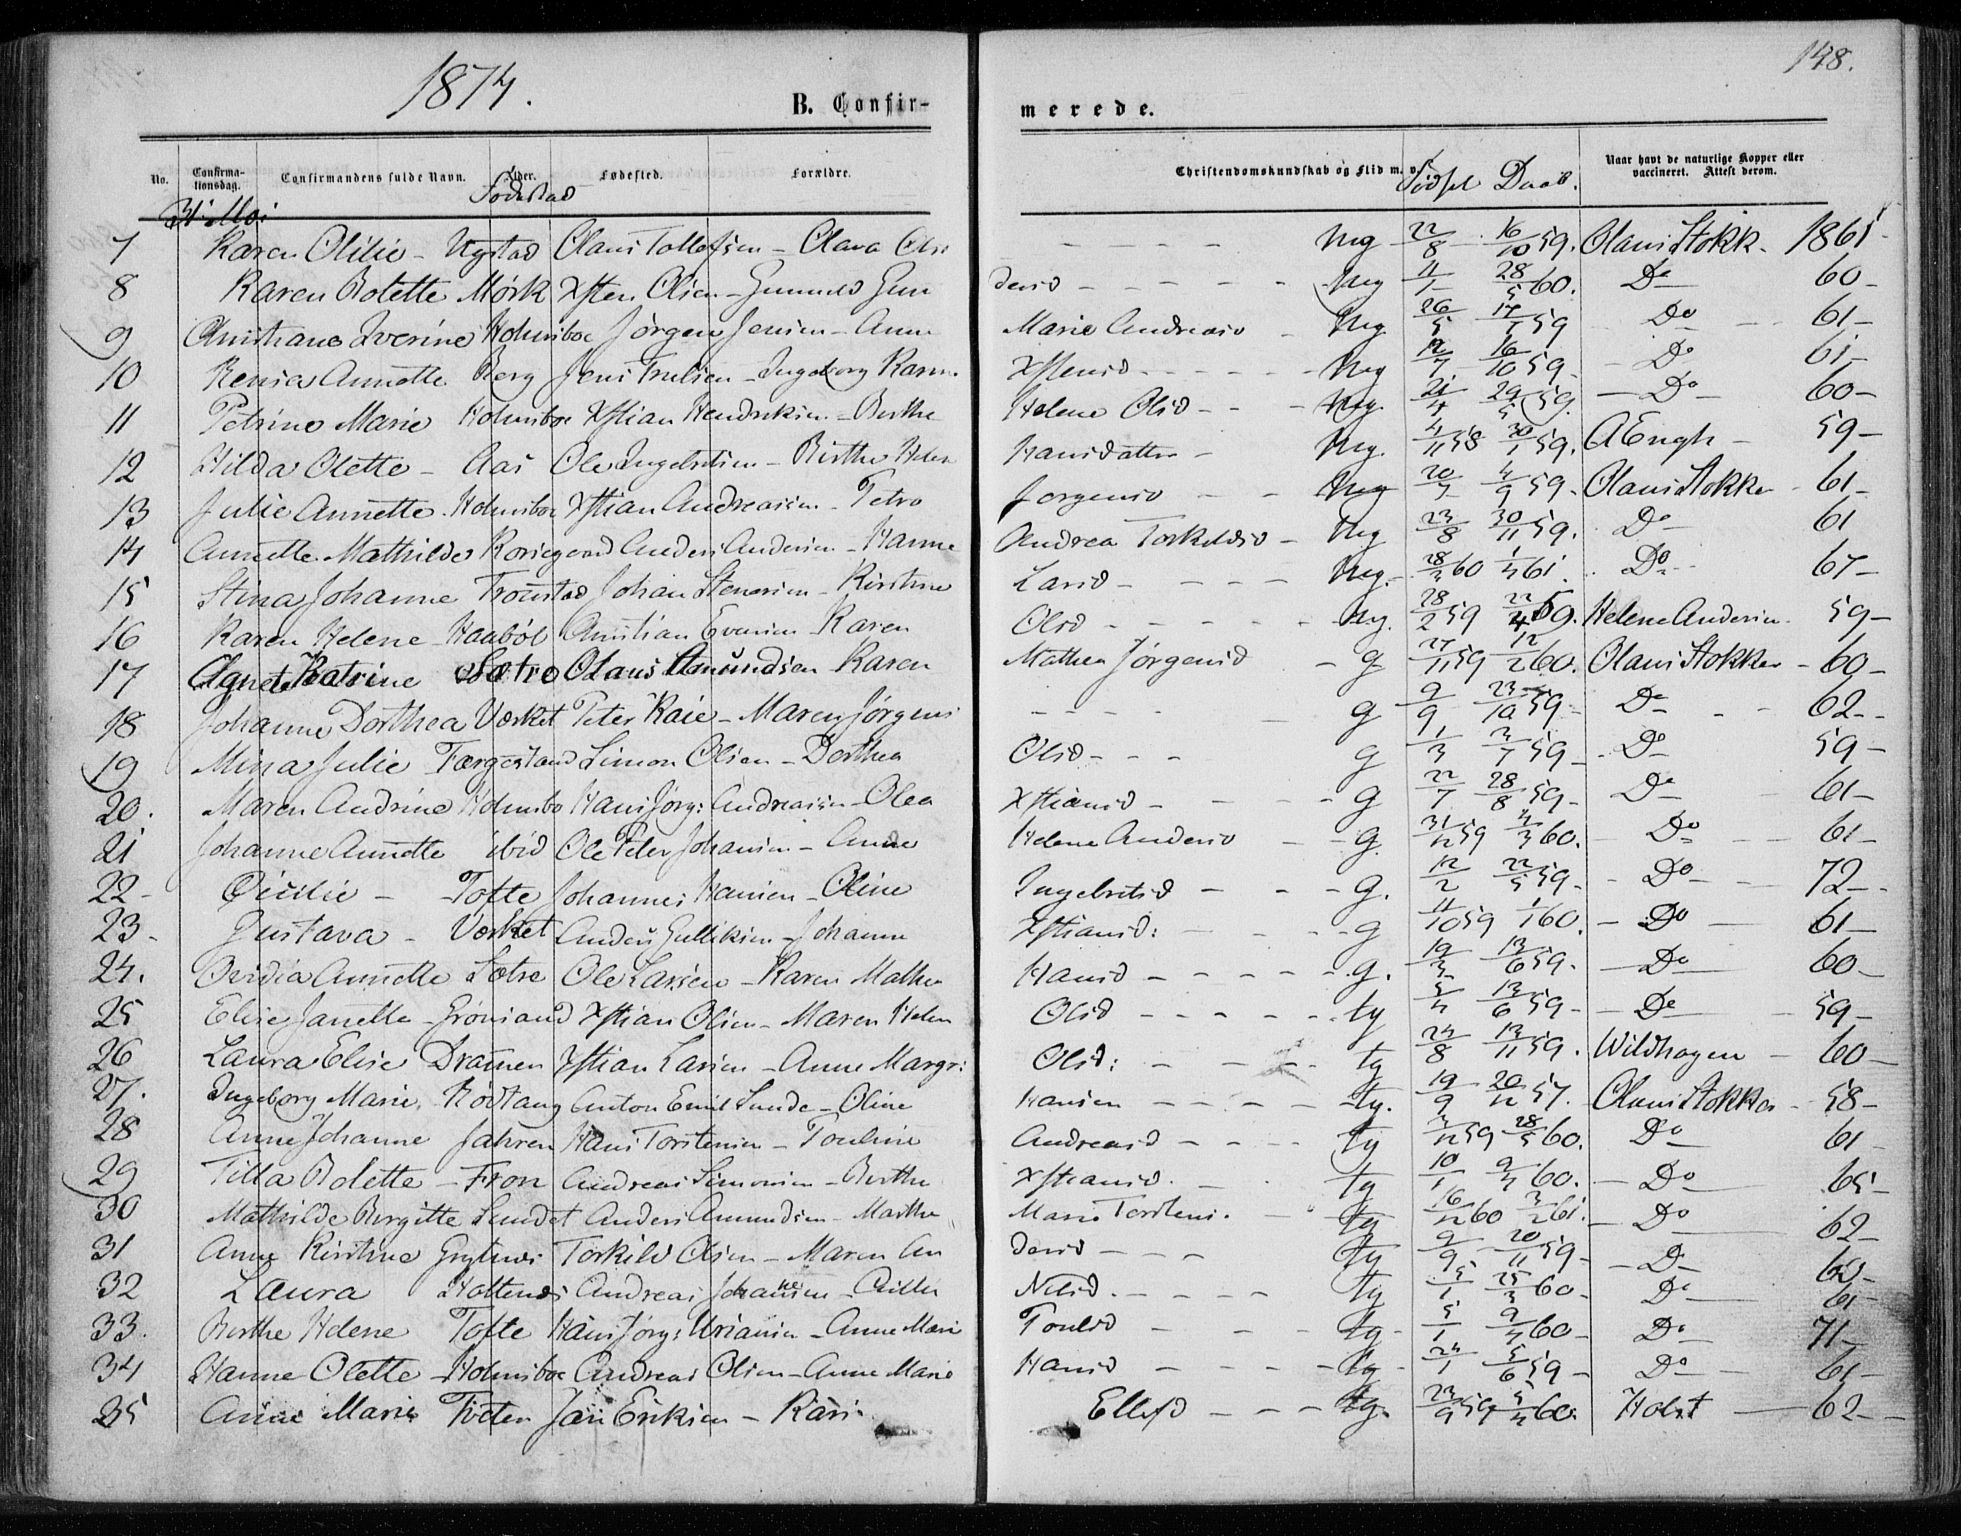 1874.
148.
B. Confir-
merede.
No. Confirma-tionsdag. Confirmandens fulde Navn. Alder. Fødested. Forældre. Christendomskundskab og Flid m. v. Fødsel Daab. Naar havt de naturlige Kopper eller vaccineret. Attest derom.
Fodestad
31 Mai
7 Karen Olilie - Nystad Olaus Tollefsen - Olava Ols - - - - Mg 22/8 16/10 59. Olaus Stokk. 1861
8 Karen Bolette Mørk Xsten Olsen - Gunnild Gun dersd - - - - - Mg 11/1 28/5 60. Do 60 -
9 Christiane Iverine Holmsboe Jørgen Jensen - Anne Marie Andreasd - Mg 26/5 17/7 59 Do 61 -
10 Rensia Annette Berg Jens Trulsen - Ingeborg Karen Xstensd - - - - Mg 12/7 16/10 59 - Do 61 -
11 Petrine Marie Holmsboe Xstian Hendriksen - Berthe Helene Olsd - - - Mg. 21/4 29/5 59. - Do - 60 -
12 Hilda Olette - Aas Ole Ingebretsen - Birthe Helen Hansdatter - Mg. 4/11 58 30/1 59. A Engh - 59 -
13 Julie Annette Holmsboe Xstian Andreassen - Petro Jorgensd - - Mg 20/7 4/9 59 - Olaus Stokke - 61 -
14 Annette Mathilde Korsegaard Anders Andersen - Hanne Andrea Torkildsd - Mg 23/8 30/11 59. Do 61
15 Stina Johanne Tromstad Johan Stenersen - Kirstine Larsd - - - - Mg. 28/3 60 1/4 61. Do 67 -
16 Karen Helene - Haabøl Christian Evensen - Karen Olsd - - - - - Mg. 28/2 59 22/4 59. Helene Andersen 59 -
17 Agnete Katrine Sætre Olaus Amundsen Karen Mathea Jørgensd - g 27/11 59 12/2 60. Olaus Stokke - 60 -
18 Johanne Dorthea Værket Peter Kaie - Maren Jørgens - - - - g 9/9 23/10 59 - Do - - 62 - -
19 Mina Julie Færgestand Simon Olsen - Dorthea Olsd - - - g 1/3 3/7 59 - Do 59 -
20. Maren Andrine Holmsbo Hans Jørg: Andreassen - Olea Xstiansd - - - g 22/7 28/8 59 - Do 61 -
21 Johanne Annette ibid Ole Peter Johansen - Anne Helene Andersd - - g. 31/12 59 4/3 60. - Do 61 -
22 - Cicilie - Tofte Johannes Hansen - Oline Ingebretsd - - - g. 12/2 22/5 59 - - Do - 72 -
23 - Gustava - Værket Anders Gulliksen - Johanne Xstiansd: - - - g 11/10 59 1/1 60. - Do - 61 -
24. Ovidia Annette Sætre Ole Larsen - Karen Mathea Hansd - - - - g. 19/3 13/6 59. - Do 60 -
25 Elise Janette - Grønsand Xstian Olsen - Maren Helen Olsd - - - - - tg 5/4 13/6 59 - - Do 59 -
26 Laura Elise Dramen Xstian Larsen - Anne Margr: Olsd: - - - tg 24/8 13/11 59. Wildhagen - 60 -
27. Ingeborg Marie, Rødtang Anton Emil Sunde - Oline Hansen - - - - tg. 19/9 20/12 57. Olaus Stokke - 58 -
28 Anne Johanne Jahren Hans Torstensen - Pouline Andreasd - - - tg 3/12 59 28/5 60. Do 61
29 Tilla Bolette - Fron Andreas Simensen - Berthe Xstiansd. - tg 10/1 9/4 60. - Do 65 -
30 Mathilde Birgitte Sundet Anders Amundsen - Marthe Marie Torstens. - tg 16/12 60 3/2 61. - Do 62 -
31 Anne Kirstine Grytnes Torkild Olsen - Maren An dersd - - - tg 9/9 20/11 59 - - Do 60 -
32 Laura Holtenes Andreas Johannesen - Cicilie Nilsd. - - - - tg 5/1 25/3 60 - Do 61
33. Berthe Helene Tofte Hans Jørg: Uriansen - Anne Marie Poulsd - - - tg - 5/1 9/4 60 - Do 71 -
34 Hanne Olette - Holmsboe Andreas Olsen - Anne Marie Hansd - - - - tg - 24/1 5/6 59 - Do - 61 -
35 Anne Marie Toten Jan Eriksen - Kari Ellefsd - - - tg. 23/9 59 5/4 60. Holst - 62 -